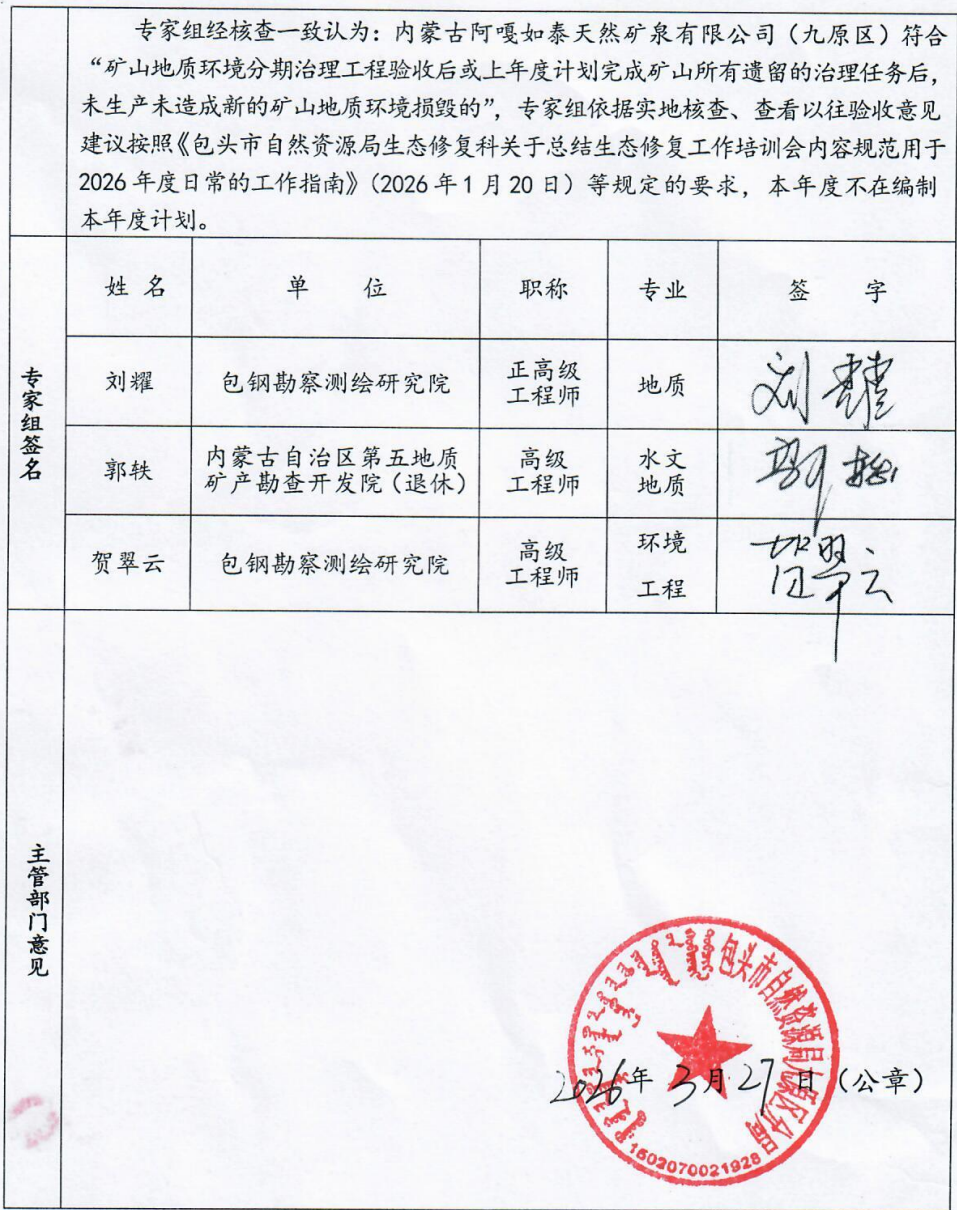 专家组经核查一致认为：内蒙古阿嘎如泰天然矿泉有限公司（九原区）符合
“矿山地质环境分期治理工程验收后或上年度计划完成矿山所有遗留的治理任务后，
未生产未造成新的矿山地质环境损毁的”，专家组依据实地核查、查看以往验收意见
建议按照《包头市自然资源局生态修复科关于总结生态修复工作培训会内容规范用于
2026年度日常的工作指南》（2026年1月20日）等规定的要求，本年度不在编制
本年度计划。
专家组签名
姓 名 单 位 职称 专业 签 字
刘耀 包钢勘察测绘研究院 正高级
工程师 地质 刘耀
郭轶 内蒙古自治区第五地质
矿产勘查开发院（退休） 高级
工程师 水文
地质 郭轶
贺翠云 包钢勘察测绘研究院 高级
工程师 环境
工程 贺翠云
主管部门意见
包头市自然资源局九原区分局
2026年3月27日（公章）
1502070021928